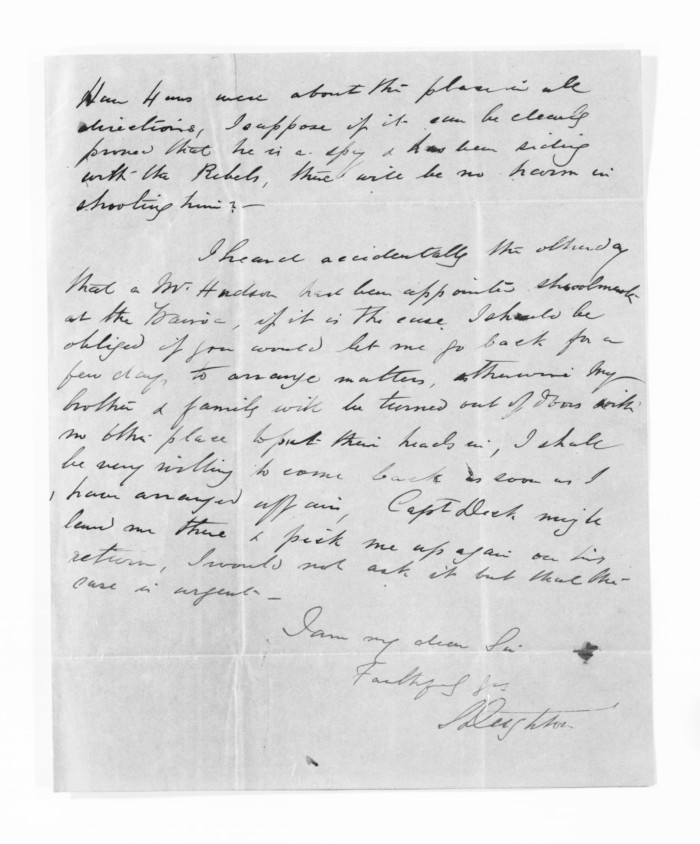 Hau Haus were about the place in all
directions, I suppose if it can be clearly
proved that he is a spy & has been siding
with the Rebels, there will be no harm in
shooting him? —
I heard accidentally the other day
that a Mr Hudson had been appointed schoolmaster
at the Wairoa, if it is the case I should be
obliged if you would let me go back for a
few days to arrange matters, otherwise my
brother & family will be turned out of doors with
no other place to put their heads in, I shall
be very willing to come back as soon as I
have arranged affairs, Capt Deck might
land me there & pick me up again on his
return, I would not ask it but that the
case is urgent —
I am my dear Sir
Faithfully yrs
S Deighton